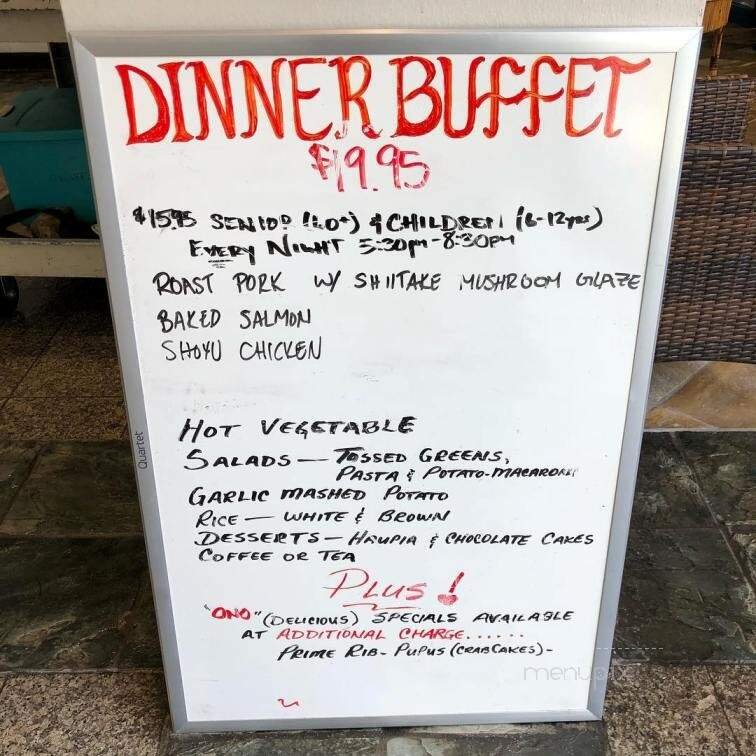 DINNER BUFFET
$19.95
$15.95 SENIOR (60+) & CHILDREN (6-12yrs)
EVERY NIGHT 5:30pm-8:30PM
ROAST PORK W/ SHIITAKE MUSHROOM GLAZE
BAKED SALMON
SHOYU CHICKEN
HOT VEGETABLE
SALADS — TOSSED GREENS,
PASTA & POTATO-MACARONI
GARLIC MASHED POTATO
RICE — WHITE & BROWN
DESSERTS — HAUPIA & CHOCOLATE CAKES
COFFEE OR TEA
PLUS!
"ONO" (DELICIOUS) SPECIALS AVAILABLE
AT ADDITIONAL CHARGE......
PRIME RIB - PUPUS (CRAB CAKES) -
Quartet
menupix